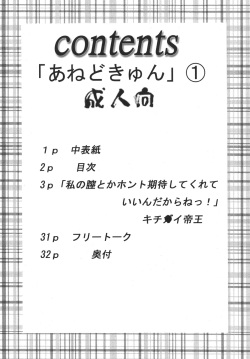 contents
「あねどきゅん」①
成人向
1p 中表紙
2p 目次
3p「私の膣とかホント期待してくれて
いいんだからねっ！」
キチ イ帝王
31p フリートーク
32p 奥付